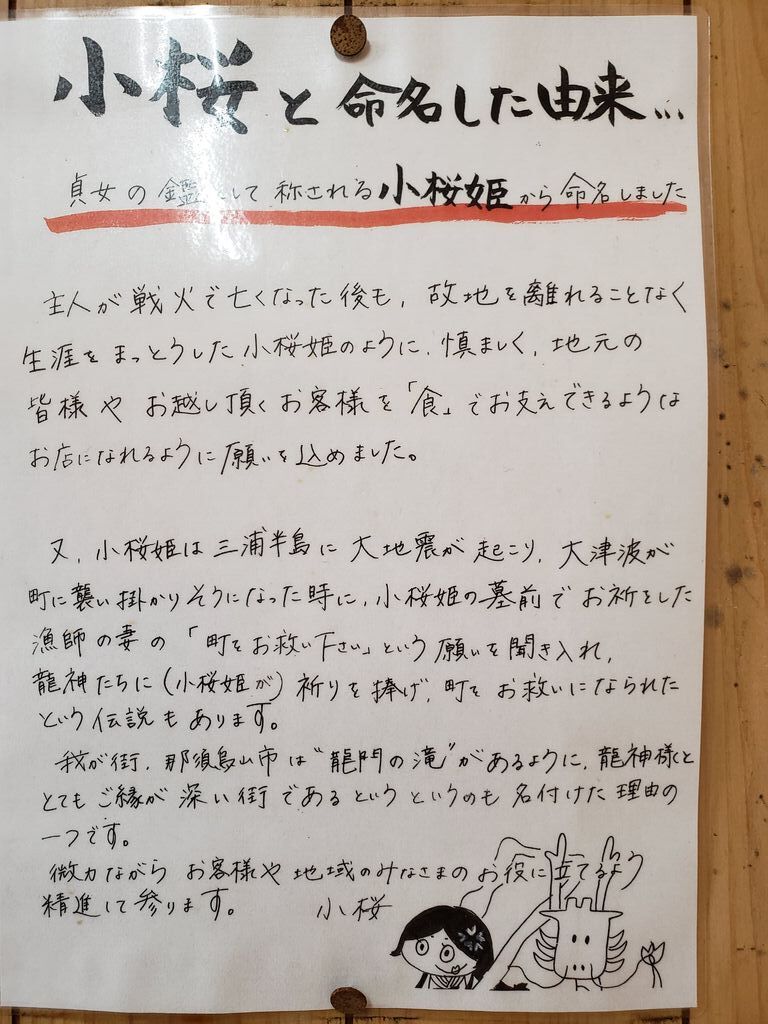 小桜と命名した由来…
貞女の鑑として称される小桜姫から命名しました
主人が戦火で亡くなった後も、故地を離れることなく
生涯をまっとうした小桜姫のように、慎ましく、地元の
皆様やお越し頂くお客様を「食」でお支えできるような
お店になれるように願いを込めました。
又、小桜姫は三浦半島に大地震が起こり、大津波が
町に襲い掛かりそうになった時に、小桜姫の墓前でお祈をした
漁師の妻の「町をお救い下さい」という願いを聞き入れ、
龍神たちに(小桜姫が)祈りを捧げ、町をお救いになられた
という伝説もあります。
我が街、那須烏山市は"龍門の滝"があるように、龍神様と
とてもご縁が深い街であるというというのも名付けた理由の
一つです。
微力ながらお客様や地域のみなさまのお役に立てるよう
精進して参ります。 小桜